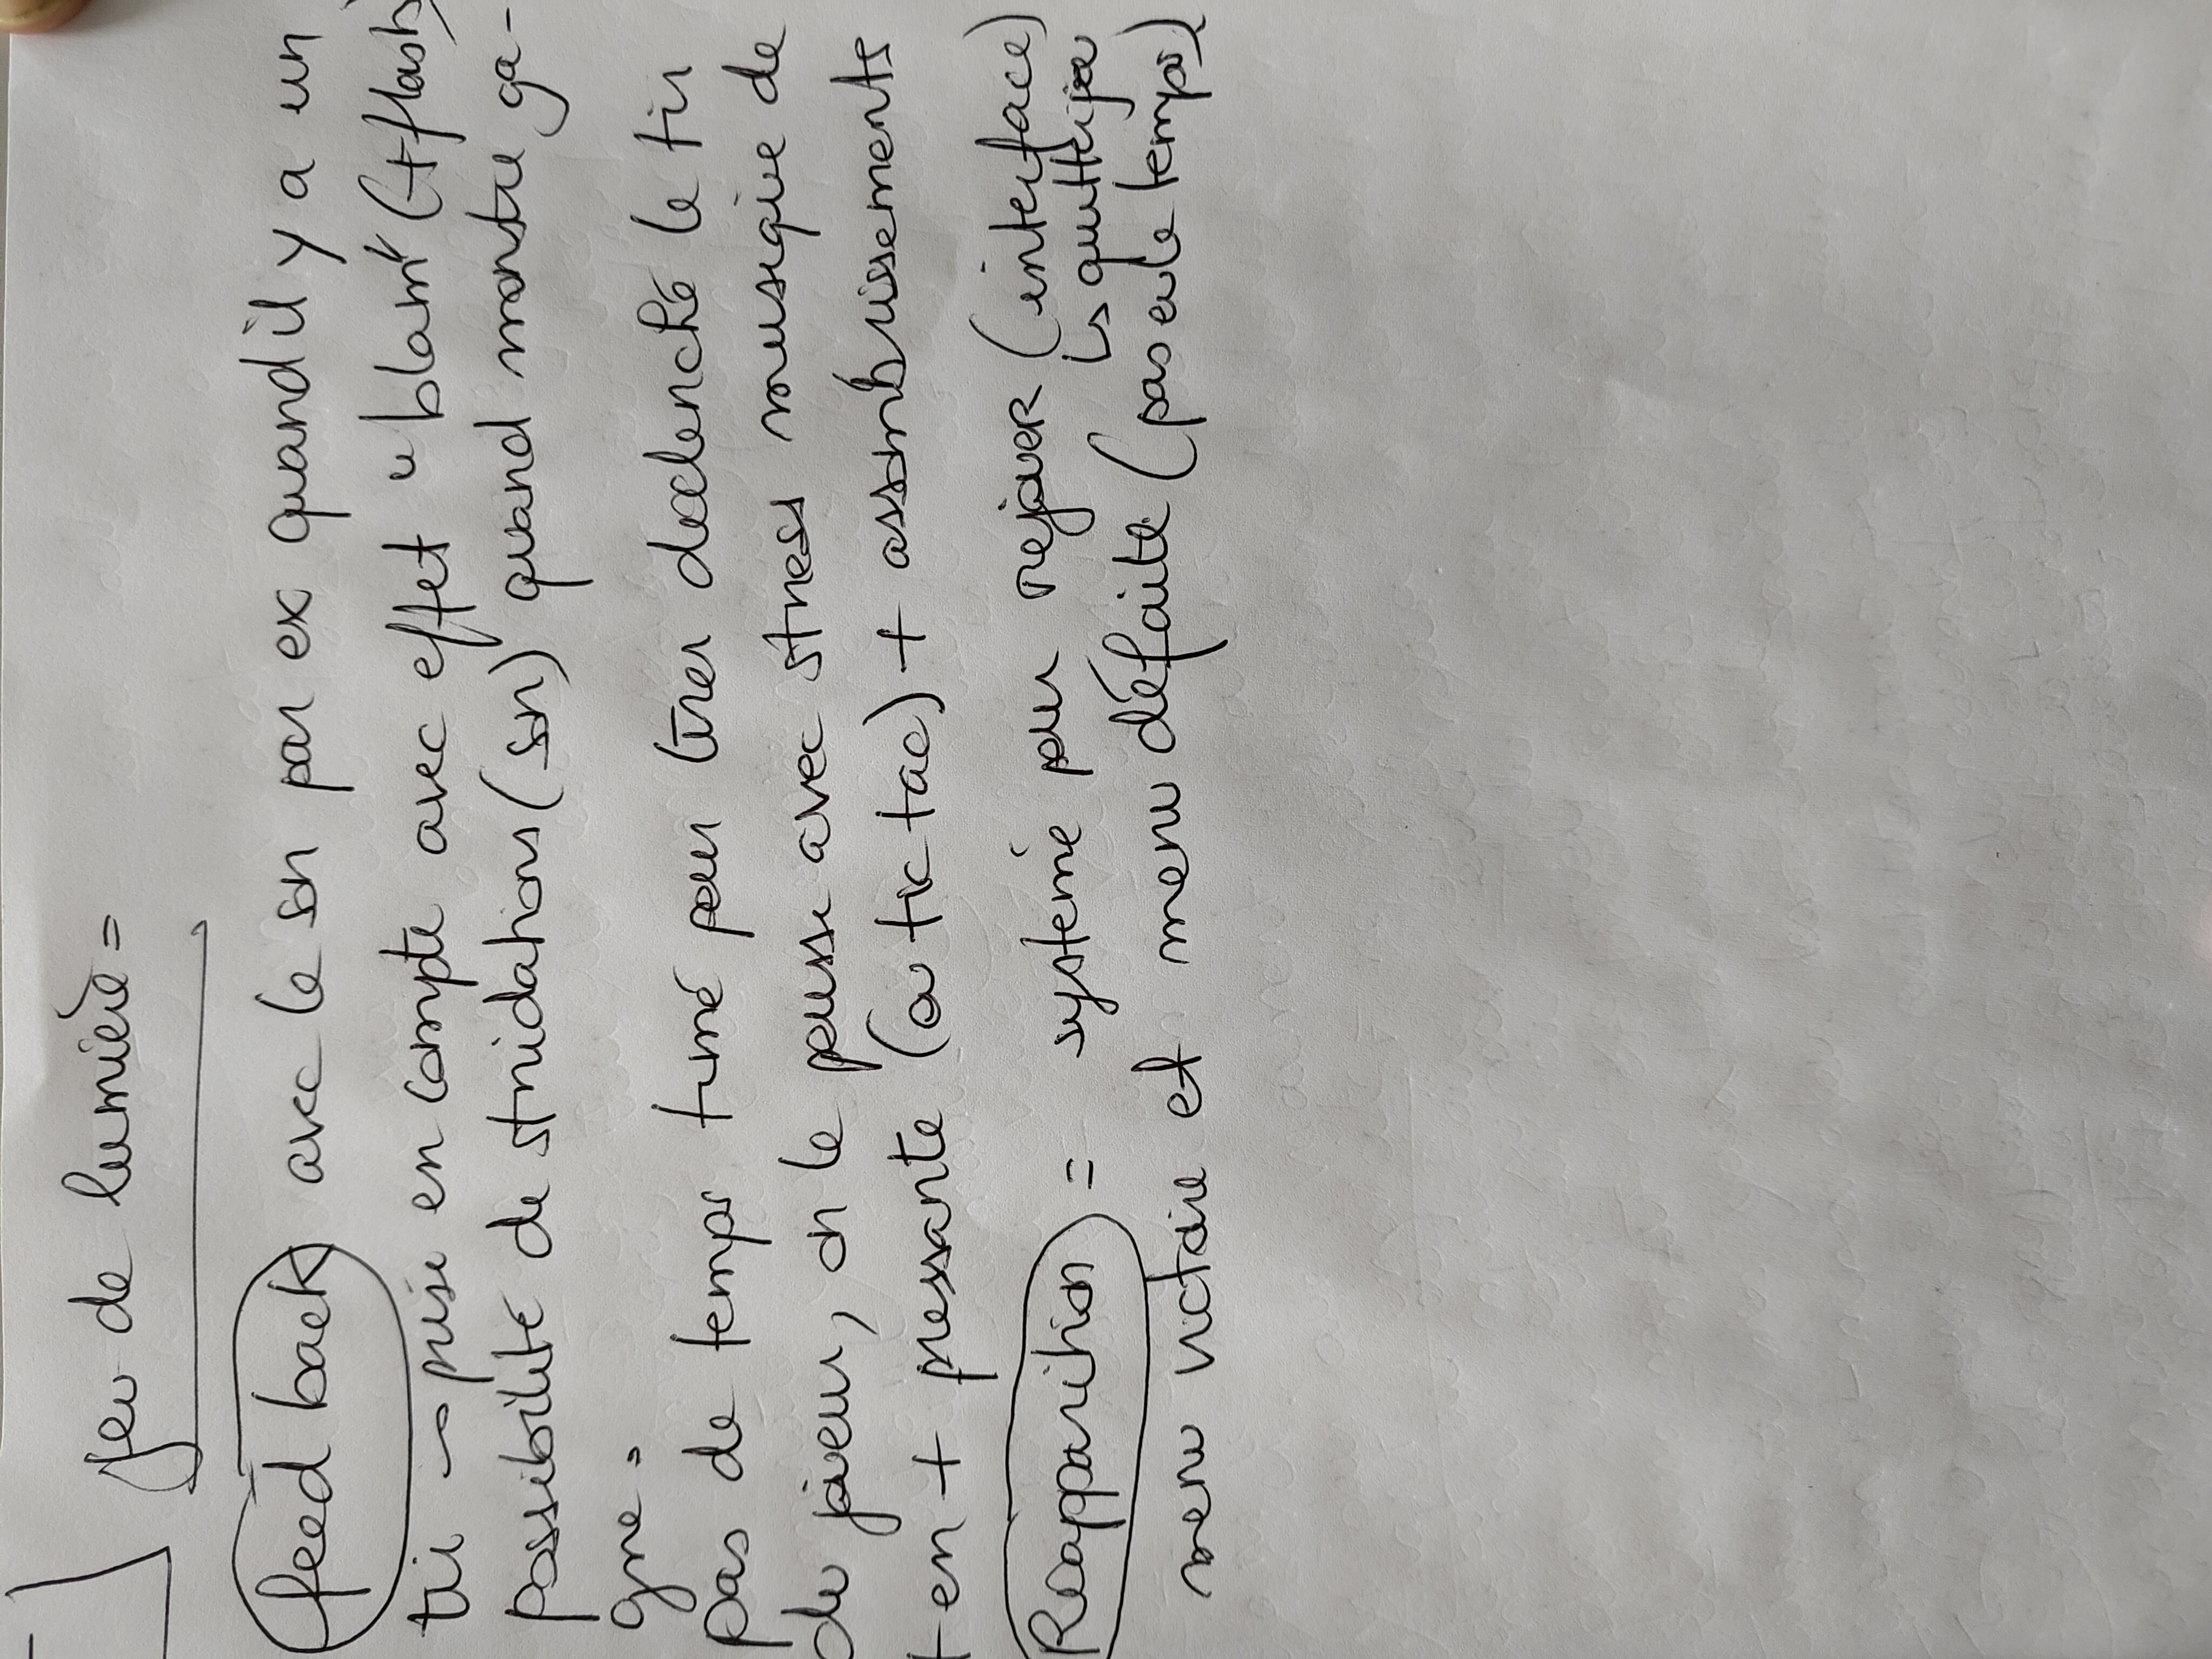 jeu de lumière =
feed back avec le son par ex quand il y a un
tir → prise en compte avec effet "blam" (+flash)
possibilité de stridations (son) quand monstre ga-
gne.
pas de temps timé pour tirer declenché le tir
du joueur, on le pousse avec stress musique de
+ en + pressante (ou tic tac) + assombrissements
Réapparition = système pour rejouer (interface)
↳ quitter jeu
menu victoire et menu défaite (pas eu le temps)